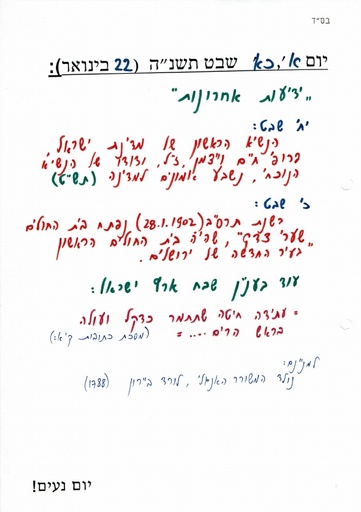 בס"ד
יום א', כא' שבט תשנ"ה (22 בינואר):
"ידיעות אחרונות"
יח' שבט:
הנשיא הראשון של מדינת ישראל
פרופ' חיים ויצמן, ז"ל, ודודו של הנשיא
הנוכחי, נשבע אמונים למדינה (תש"ט)
כ' שבט:
בשנת תרס"ב (28.1.1902) נפתח בית החולים
"שערי צדק", שהיה בית החולים הראשון
בעיר החדשה של ירושלים.
עוד בענין שבח ארץ ישראל:
= עתידה חיטה שתתמר כדקל ועולה
בראש הרים.... = (מסכת כתובות קי"א:)
למנינם:
נולד המשורר האנגלי, לורד ביירון (1788)
יום נעים!